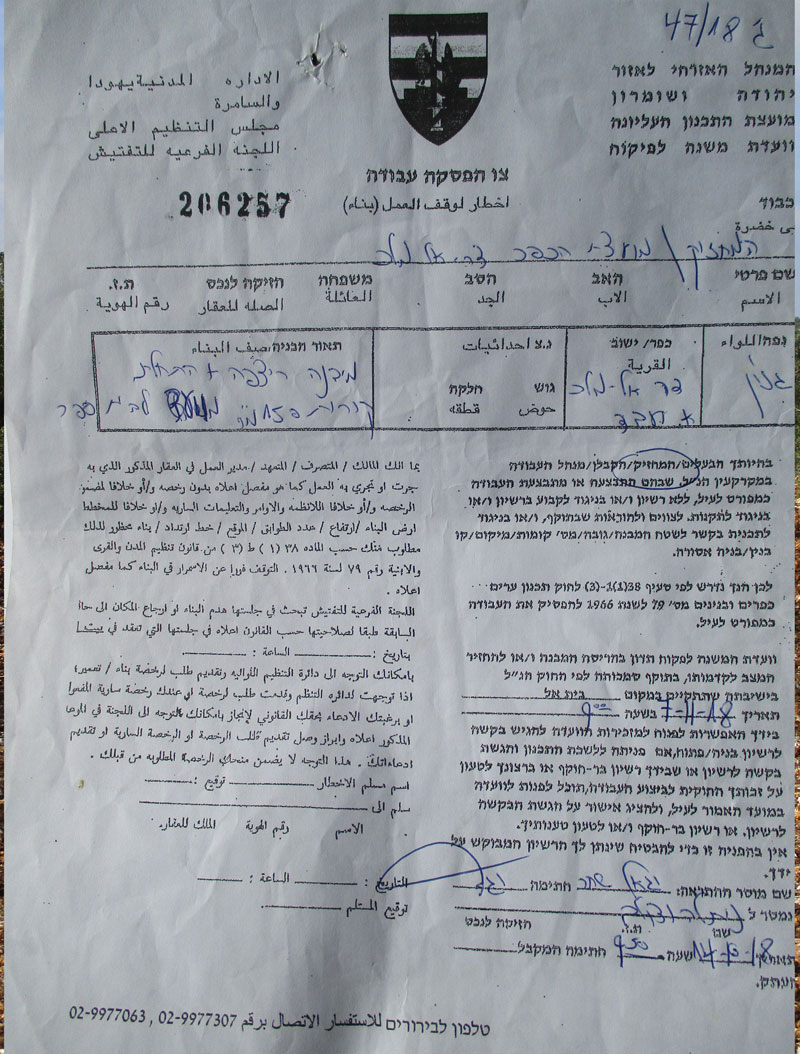 ג' 47/18
המנהל האזרחי לאזור
יהודה ושומרון
מועצת התכנון העליונה
וועדת משנה לפיקוח
الاداره المدنية يهودا
والسامرة
مجلس التنظيم الاعلى
اللجنه الفرعيه للتفتيش
צו הפסקת עבודה
اخطار لوقف العمل (بناء)
206257
כבוד
המחזיק / מועצת הכפר
שם פרטי האב הסב משפחה חזיקה לנכס ת.ז.
الاسم الاب الجد العائلة الصله للعقار رقم الهوية
נפה اللواء כפר/ישוב القرية נ.צ احداثيات תאור הבניה صيف البناء
גוש חלקה
حوض قطقه
ג'נין
בהיותך הבעלים/המחזיק/הקבלן/מנהל העבודה
במקרקעין הנ"ל, שבהם התבצעה או מתבצעת העבודה
כמפורט לעיל, ללא רשיון ו/או בניגוד לקבוע ברשיון ו/או
בניגוד לתקנות, לצווים ולהוראות שבתוקף, ו/או בניגוד
לתכנית בקשר לשטח המבנה/גובה/מס' קומות/מיקום/קו
בנין/בניה אסורה.
לכן הנך נדרש לפי סעיף 38(1)-(3) לחוק תכנון ערים
כפרים ובנינים מס' 79 לשנת 1966 להפסיק את העבודה
כמפורט לעיל.
וועדת המשנה לפקוח תדון בהריסת המבנה ו/או להחזיר
המצב לקדמותו, בתוקף סמכותה לפי החוק הנ"ל
בישיבתה שתתקיים במקום בית אל
תאריך 7-11-18 בשעה 9:00
בידך האפשרות לפנות למזכירות הוועדה להגיש בקשה
לרשיון בניה/פתוח, אם פניתה ללשכת התכנון והגשת
בקשה לרשיון או שבידך רשיון בר-תוקף או ברצונך לטעון
על זכותך החוקית לביצוע העבודה, תוכל לפנות לוועדה
במועד האמור לעיל, ולהציג אישור על הגשת הבקשה
לרשיון, או רשיון בר-תוקף ו/או לטעון טענותיך.
אין בהפניה זו כדי להבטיח שינתן לך הרשיון המבוקש על
ידך.
שם מוסר ההתראה: חתימה
נמסר ל
שם ת.ז. חזיקה לנכס
תאריך שעה 9:50 חתימה המקבל
העתק.
بما انك المالك / المتصرف / المتعهد / مدير العمل في العقار المذكور الذي به
جرت او تجري به العمل كما هو مفصل اعلاه بدون رخصه و/أو خلافا لمضمون
الرخصه و/أو خلافا للانظمه والاوامر والتعليمات الساريه و/او خلافا للمخطط
ارض البناء/ارتفاع / عدد الطوابق / الموقع / خط ارتداد / بناء محظور لذلك
مطلوب منك حسب الماده ٣٨ (١) ط (٣) من قانون تنظيم المدن والقرى
والابنية رقم ٧٩ لسنة ١٩٦٦ . التوقف فورا عن الاسمرار في البناء كما مفصل
اعلاه .
اللجنة الفرعية للتفتيش تبحث في جلستها هدم البناء او ارجاع المكان الى حالة
السابقة طبقا لصلاحيتها حسب القانون اعلاه في جلستها التي تعقد في
بتاريخ : الساعة :
بامكانك التوجه الى دائرة التنظيم اللوائيه وتقديم طلب لرخصة بناء / تعمير
اذا توجهت لدائره التنظم وقدمت طلب لرخصة او عندك رخصة سارية المفعول
او برغبتك الادعاء بحقك القانوني لإنجاز بامكانك التوجه الى اللجنة في الموعد
المذكور اعلاه وإبراز وصل تقديم طلب الرخصة او الرخصة السارية او تقديم
ادعاءاتك . هذا التوجه لا يضمن منحك الرخصة المطلوبه من قبلك .
اسم مسلم الاخطار توقيع :
سلم الى
الاسم رقم الهوية المالك للعقار.
التاريخ : الساعة :
توقيع المستلم
טלפון לבירורים للاستفسار الاتصال برقم 02-9977307 , 02-9977063